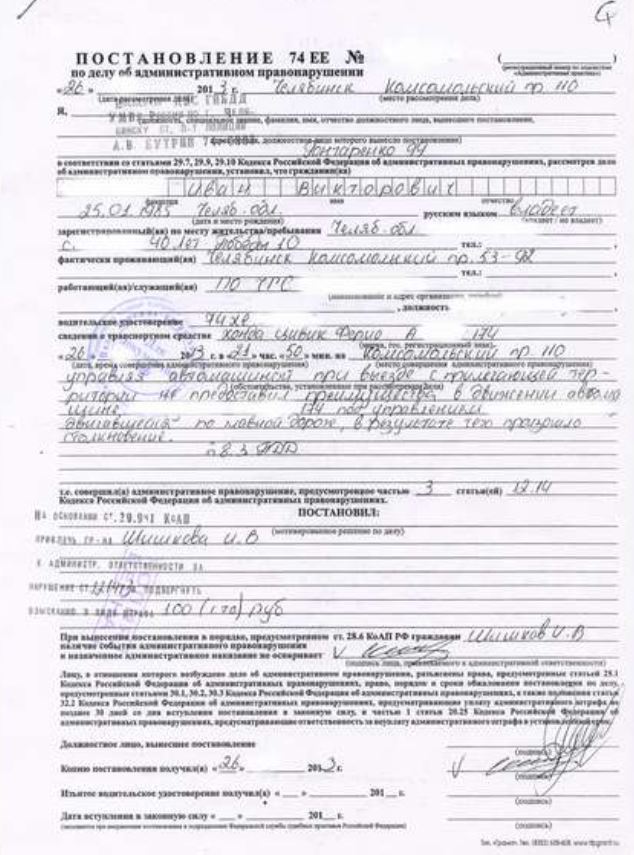 ПОСТАНОВЛЕНИЕ 74 ЕЕ №
по делу об административном правонарушении
(регистрационный номер по подсистеме «Административная практика»)
«26» 2013 г. Челябинск Комсомольский пр. 110
(дата рассмотрения дела) (место рассмотрения дела)
Я,
(должность, специальное звание, фамилия, имя, отчество должностного лица, вынесшего постановление)
А.В. БУТРИН
Гончаренко 99
в соответствии со статьями 29.7, 29.9, 29.10 Кодекса Российской Федерации об административных правонарушениях, рассмотрев дело
об административном правонарушении, установил, что гражданин(ка)
Иван Викторович
фамилия имя отчество
25.01.1985 Челяб. обл. русским языком владеет
(дата и место рождения) (владеет / не владеет)
зарегистрированный(ая) по месту жительства/пребывания Челяб. обл
с. 40 лет Победы 10 тел.:
фактически проживающий(ая) Челябинск Комсомольский пр. 53-92
тел.:
работающий(ая)/служащий(ая) ПО ЧГС
, должность
водительское удостоверение 74
сведения о транспортном средстве Хонда Цивик Ферио А 174
(марка, гос. регистрационный знак)
«26» 2013 г. в 21 час. «50» мин. на Комсомольский пр 110
(дата, время совершения административного правонарушения) (место совершения административного правонарушения)
управляя автомашиной при выезде с прилегающей тер-
(обстоятельства, установленные при рассмотрении дела)
ритории не предоставил преимущества в движении автома
шине, 174 под управлением
двигавшейся по главной дороге, в результате чего произошло
столкновение.
п 8.3 ПДД
т.е. совершил(а) административное правонарушение, предусмотренное частью 3 статьи(ей) 12.14
Кодекса Российской Федерации об административных правонарушениях.
ПОСТАНОВИЛ:
(мотивированное решение по делу)
НА ОСНОВАНИИ СТ.
КоАП
ПРИВЛЕЧЬ ГР-НА Шишкова И.В
К АДМИНИСТР. ОТВЕТСТВЕННОСТИ ЗА
НАРУШЕНИЕ СТ. 12.14 ч3 ПОДВЕРГНУТЬ
ВЗЫСКАНИЮ В ВИДЕ ШТРАФА 100 (сто) руб
При вынесении постановления в порядке, предусмотренном ст. 28.6 КоАП РФ гражданин Шишков И.В
наличие события административного правонарушения
и назначенное административное наказание не оспаривает
(подпись лица, привлекаемого к административной ответственности)
Лицу, в отношении которого возбуждено дело об административном правонарушении, разъяснены права, предусмотренные статьей 25.1
Кодекса Российской Федерации об административных правонарушениях, право, порядок и сроки обжалования постановления по делу,
предусмотренные статьями 30.1, 30.2, 30.3 Кодекса Российской Федерации об административных правонарушениях, а также положения статьи
32.2 Кодекса Российской Федерации об административных правонарушениях, предусматривающие уплату административного штрафа не
позднее 30 дней со дня вступления постановления в законную силу, и частью 1 статьи 20.25 Кодекса Российской Федерации об
административных правонарушениях, предусматривающие ответственность за неуплату административного штрафа в установленный срок.
Должностное лицо, вынесшее постановление
(подпись)
Копию постановления получил(а) «26» 2013 г.
(подпись)
Изъятое водительское удостоверение получил(а) « » 201 г.
(подпись)
Дата вступления в законную силу « » 201 г.
(подпись)